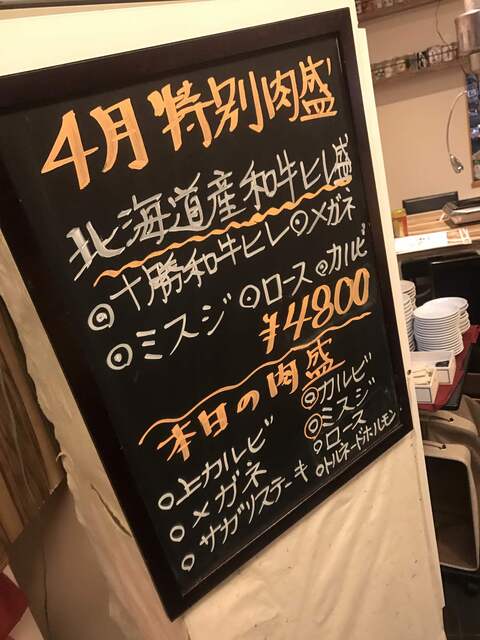 4月特別肉盛
北海道産和牛ヒレ盛
◎十勝和牛ヒレ ◎メガネ
◎ミスジ ◎ロース ◎カルビ
¥4800
本日の肉盛
○上カルビ ◎カルビ
○メガネ ◎ミスジ
○サガリステーキ ○ロース
○トルネードホルモン